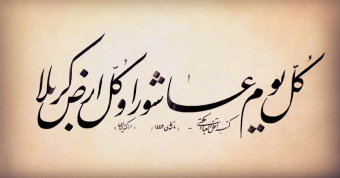 کُلّ یوم عاشورا و کُلّ ارض کربلا